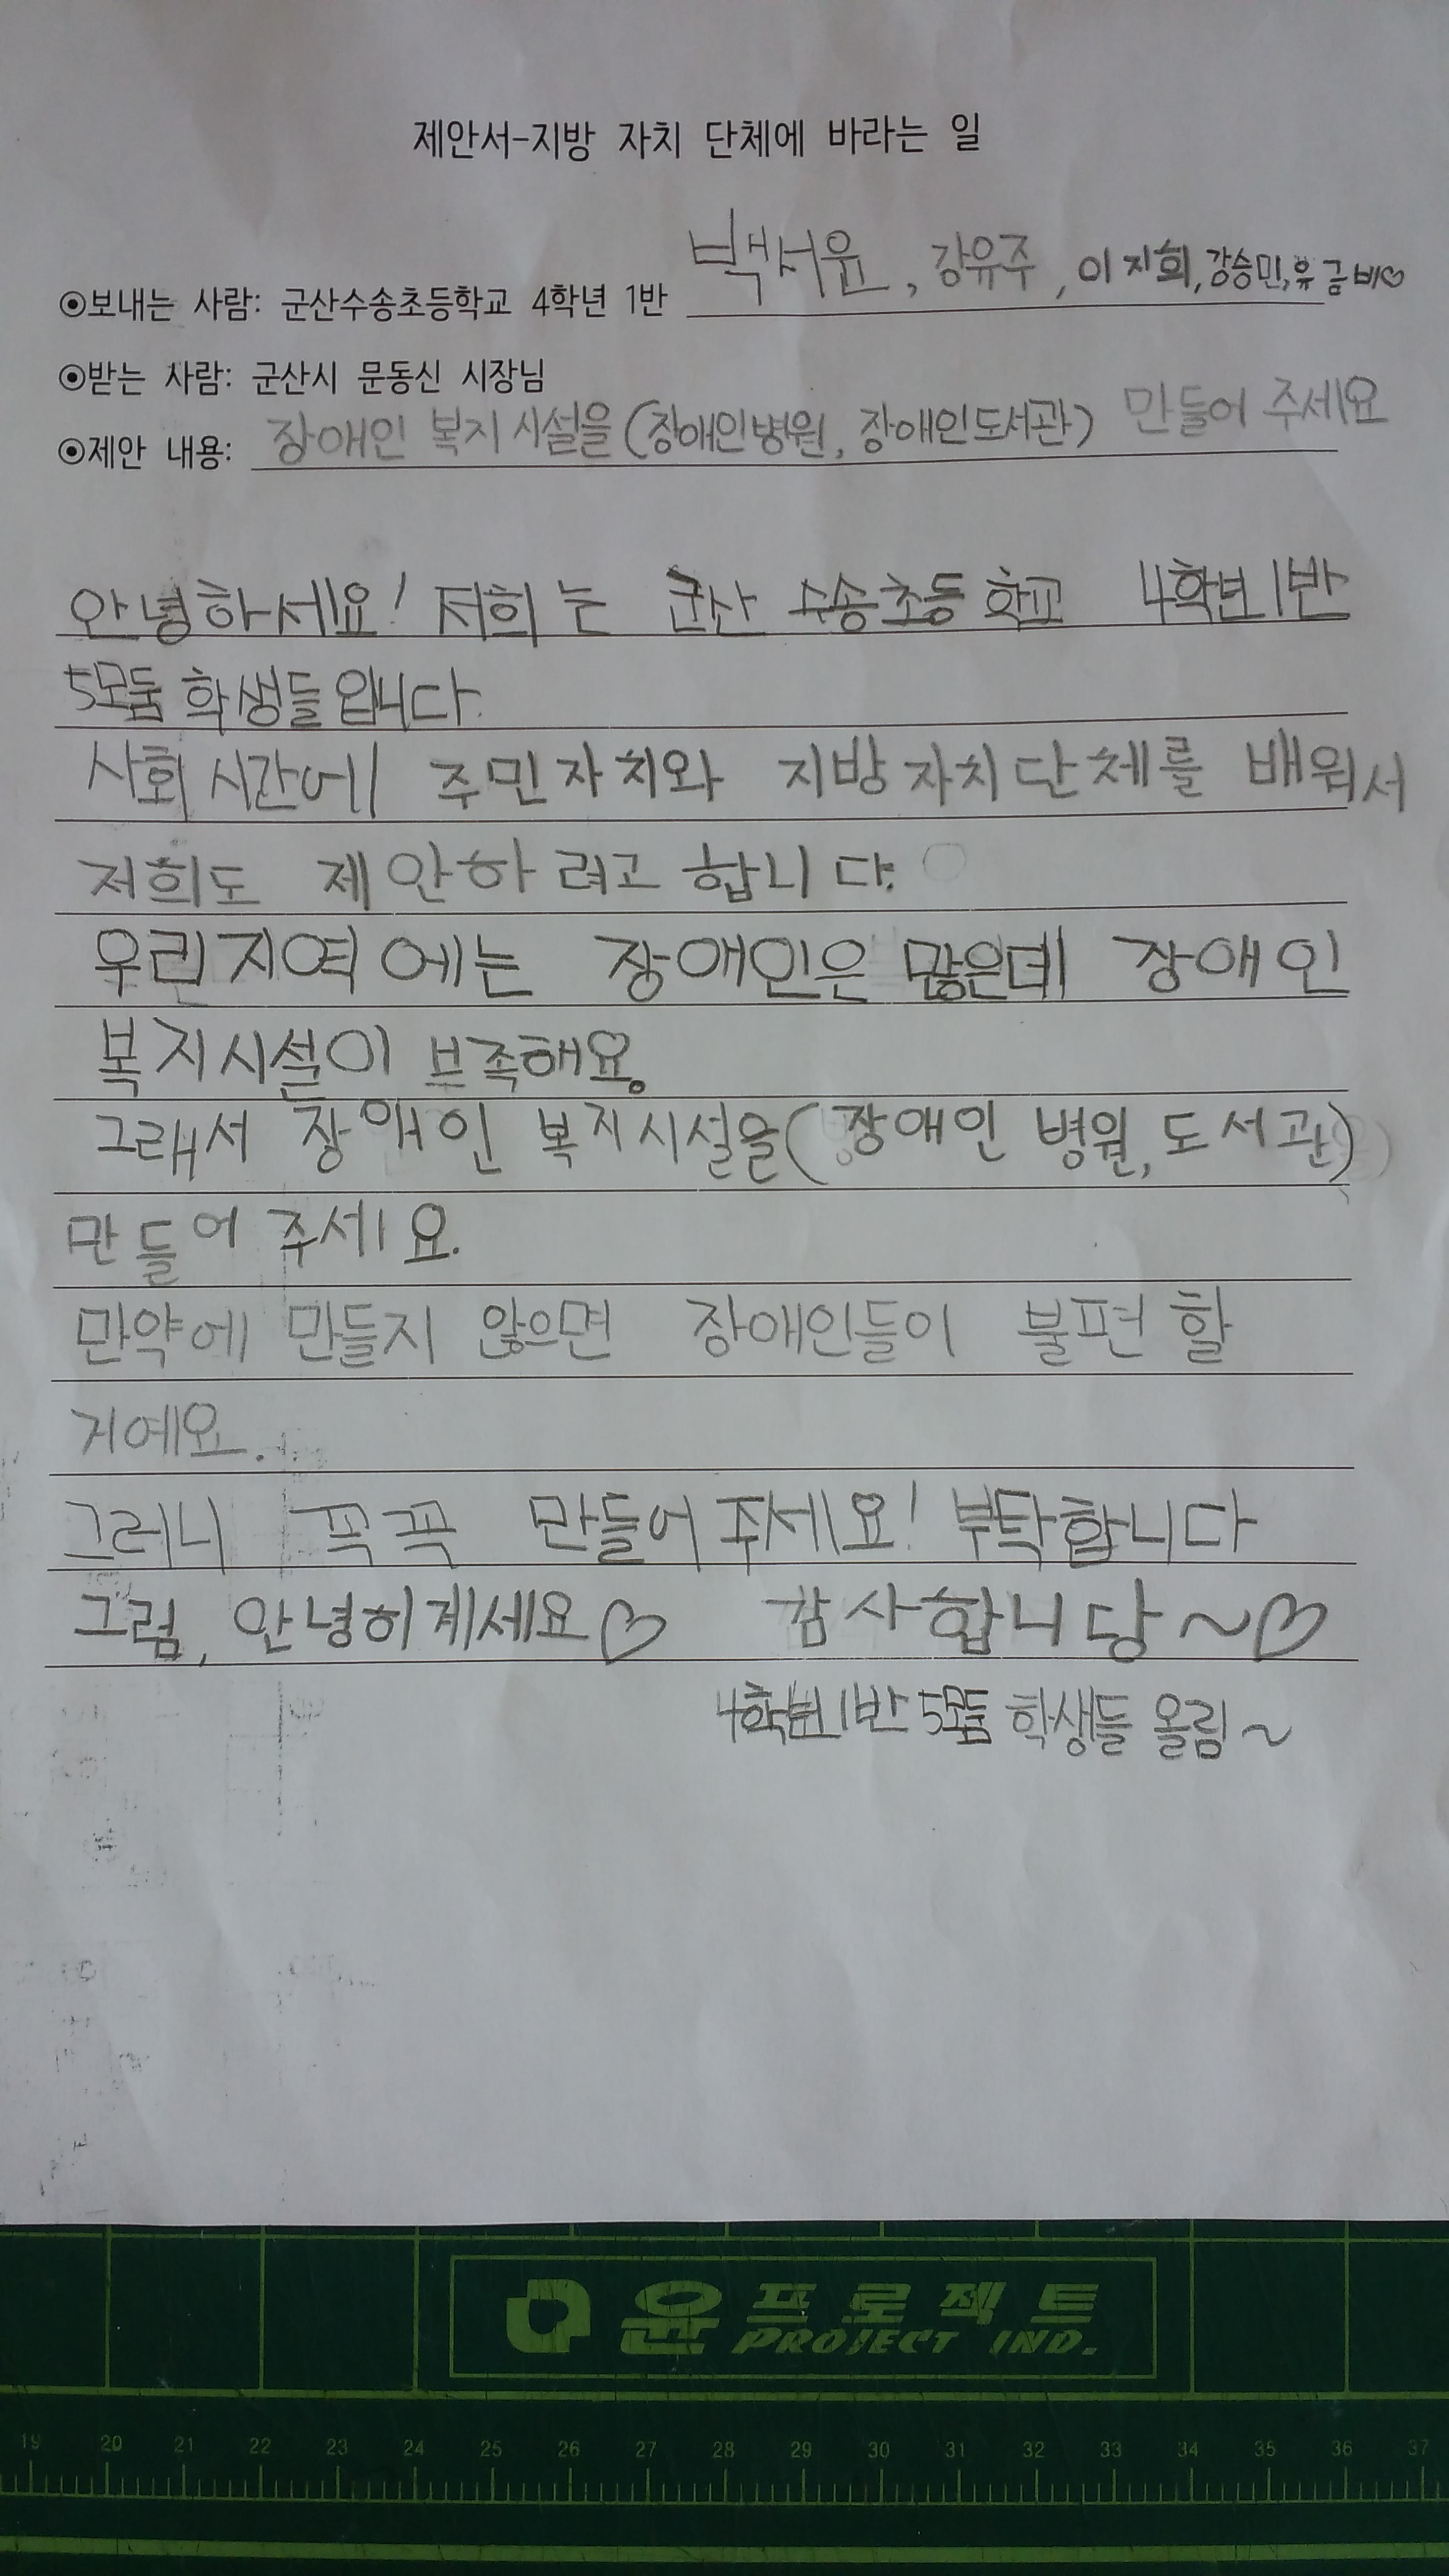 제안서-지방 자치 단체에 바라는 일
⊙보내는 사람: 군산수송초등학교 4학년 1반 백서윤, 강유주, 이지희, 강승민, 유금비♡
⊙받는 사람: 군산시 문동신 시장님
⊙제안 내용: 장애인 복지 시설을 (장애인병원, 장애인도서관) 만들어 주세요
안녕하세요! 저희는 군산 수송초등학교 4학년 1반
5모둠 학생들입니다.
사회 시간에 주민자치와 지방자치단체를 배워서
저희도 제안하려고 합니다.
우리지역에는 장애인은 많은데 장애인
복지시설이 부족해요.
그래서 장애인 복지시설을 (장애인 병원, 도서관)
만들어 주세요.
만약에 만들지 않으면 장애인들이 불편 할
거에요.
그러니 꼭꼭 만들어 주세요! 부탁합니다
그럼, 안녕히계세요♡ 감사합니당~♡
4학년 1반 5모둠 학생들 올림~
윤프로젝트
PROJECT IND.
19 20 21 22 23 24 25 26 27 28 29 30 31 32 33 34 35 36 37